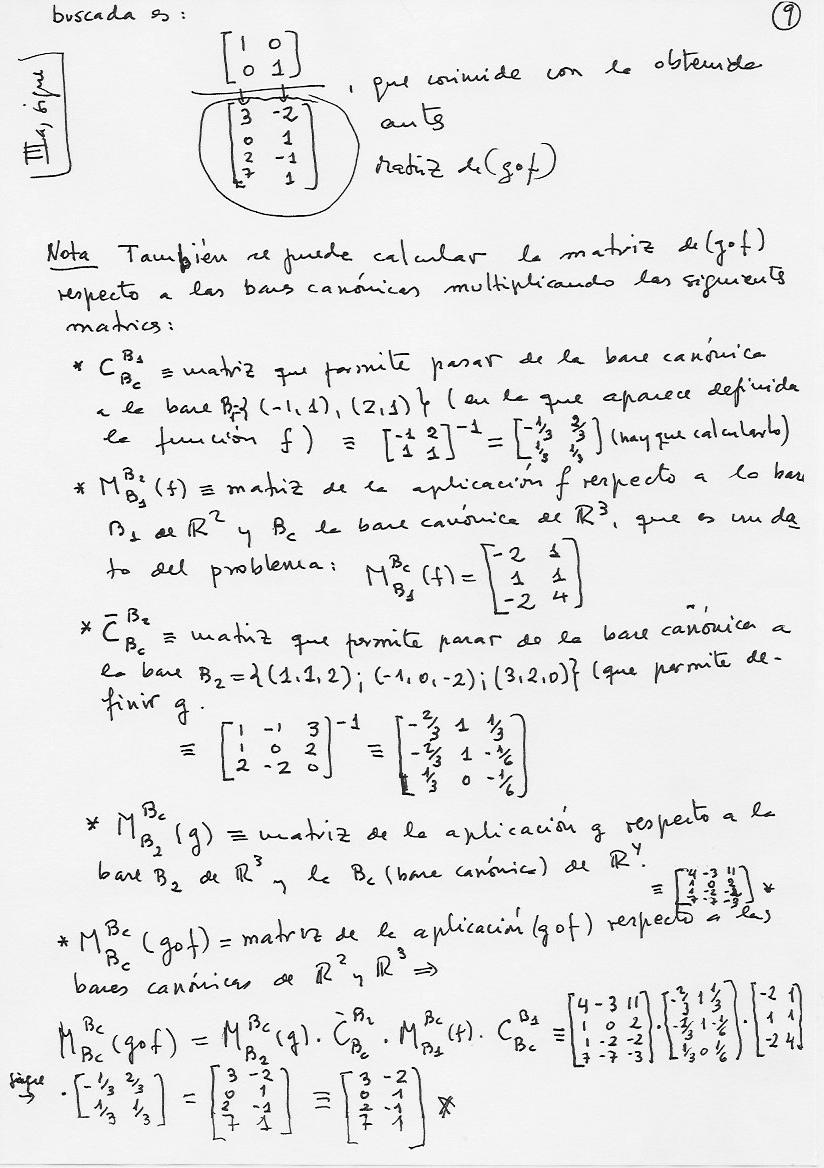 buscada es:
9
III a, sigue
[1 0; 0 1]
[3 -2; 0 1; 2 -1; 7 1]
, que coincide con la obtenida
antes
Matriz de (gof)
Nota También se puede calcular la matriz de (gof)
respecto a las bases canónicas multiplicando las siguientes
matrices:
* C_{Bc}^{B1} ≡ matriz que permite pasar de la base canónica
a la base B1={(-1,1), (2,1)} (en la que aparece definida
la función f) ≡ [-1 2; 1 1]^{-1} = [-1/3 2/3; 1/3 1/3] (hay que calcularlo)
* M_{B1}^{B2}(f) ≡ matriz de la aplicación f respecto a la base
B1 de ℝ² y Bc la base canónica de ℝ³, que es un da
to del problema: M_{B1}^{Bc}(f) = [-2 1; 1 1; -2 4]
* C̄_{Bc}^{B2} ≡ matriz que permite pasar de la base canónica a
la base B2={(1,1,2); (-1,0,-2); (3,2,0)} (que permite de-
finir g.
≡ [1 -1 3; 1 0 2; 2 -2 0]^{-1} ≡ [-2/3 1 1/3; -2/3 1 -1/6; 1/3 0 -1/6]
* M_{B2}^{Bc}(g) ≡ matriz de la aplicación g respecto a la
base B2 de ℝ³ y la Bc (base canónica) de ℝ⁴.
≡ [4 -3 11; 1 0 2; 1 -2 -2; 7 -7 -3] *
* M_{Bc}^{Bc}(gof) = matriz de la aplicación (gof) respecto a las
bases canónicas de ℝ² y ℝ³ ⇒
M_{Bc}^{Bc}(gof) = M_{B2}^{Bc}(g) · C̄_{Bc}^{B2} · M_{B1}^{Bc}(f) · C_{Bc}^{B1} ≡ [4 -3 11; 1 0 2; 1 -2 -2; 7 -7 -3] · [-2/3 1 1/3; -2/3 1 -1/6; 1/3 0 1/6] · [-2 1; 1 1; -2 4]
sigue → · [-1/3 2/3; 1/3 1/3] = [3 -2; 0 1; 2 -1; 7 1] ≡ [3 -2; 0 1; 2 -1; 7 1] *